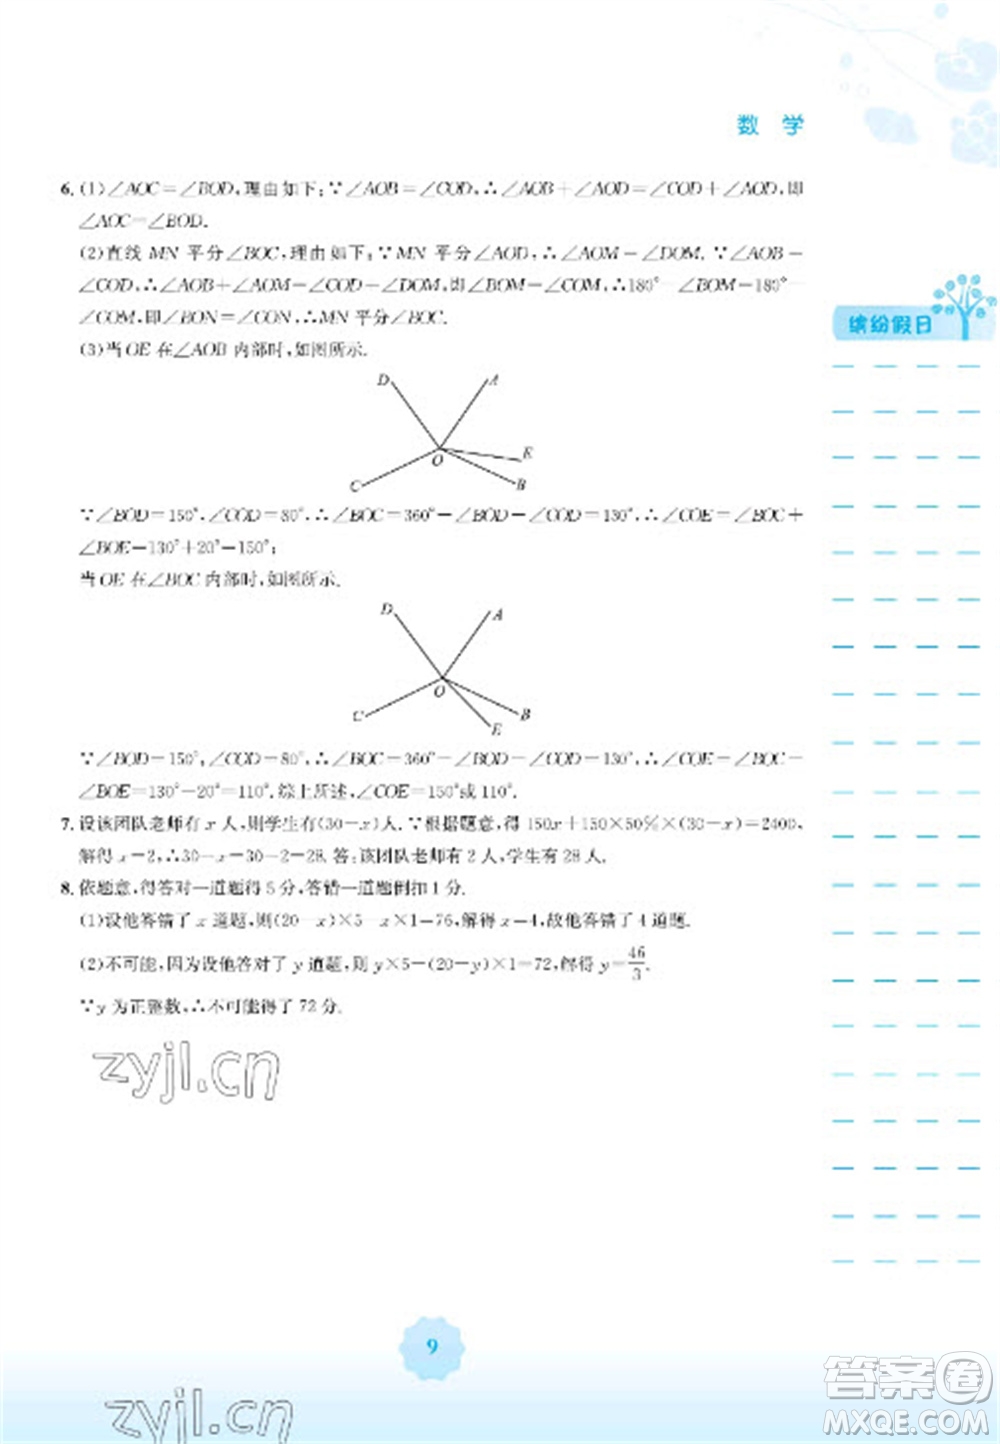 数 学
6. (1)∠AOC=∠BOD,理由如下:∵∠AOB=∠COD,∴∠AOB+∠AOD=∠COD+∠AOD,即
∠AOC=∠BOD.
(2)直线 MN 平分∠BOC,理由如下:∵MN 平分∠AOD,∴∠AOM=∠DOM. ∵∠AOB=
∠COD,∴∠AOB+∠AOM=∠COD+∠DOM,即∠BOM=∠COM,∴180°-∠BOM=180°-
∠COM,即∠BON=∠CON,∴MN 平分∠BOC.
(3)当 OE 在∠AOB 内部时,如图所示.
D
A
O
E
C
B
∵∠BOD=150°,∠COD=80°,∴∠BOC=360°-∠BOD-∠COD=130°,∴∠COE=∠BOC+
∠BOE=130°+20°=150°;
当 OE 在∠BOC 内部时,如图所示.
D
A
O
C
B
E
∵∠BOD=150°,∠COD=80°,∴∠BOC=360°-∠BOD-∠COD=130°,∴∠COE=∠BOC-
∠BOE=130°-20°=110°.综上所述,∠COE=150°或110°.
7. 设该团队老师有 x 人,则学生有(30-x)人.∵根据题意,得 150x+150×50%×(30-x)=2400,
解得 x=2,∴30-x=30-2=28. 答:该团队老师有 2 人,学生有 28 人.
8. 依题意,得答对一道题得 5 分,答错一道题倒扣 1 分.
(1)设他答错了 x 道题,则(20-x)×5-x×1=76,解得 x=4,故他答错了 4 道题.
(2)不可能,因为设他答对了 y 道题,则 y×5-(20-y)×1=72,解得 y=46/3.
∵y 为正整数,∴不可能得了 72 分.
缤纷假日
zyjl.cn
9
zyjl.cn
答案圈
MXQE.COM